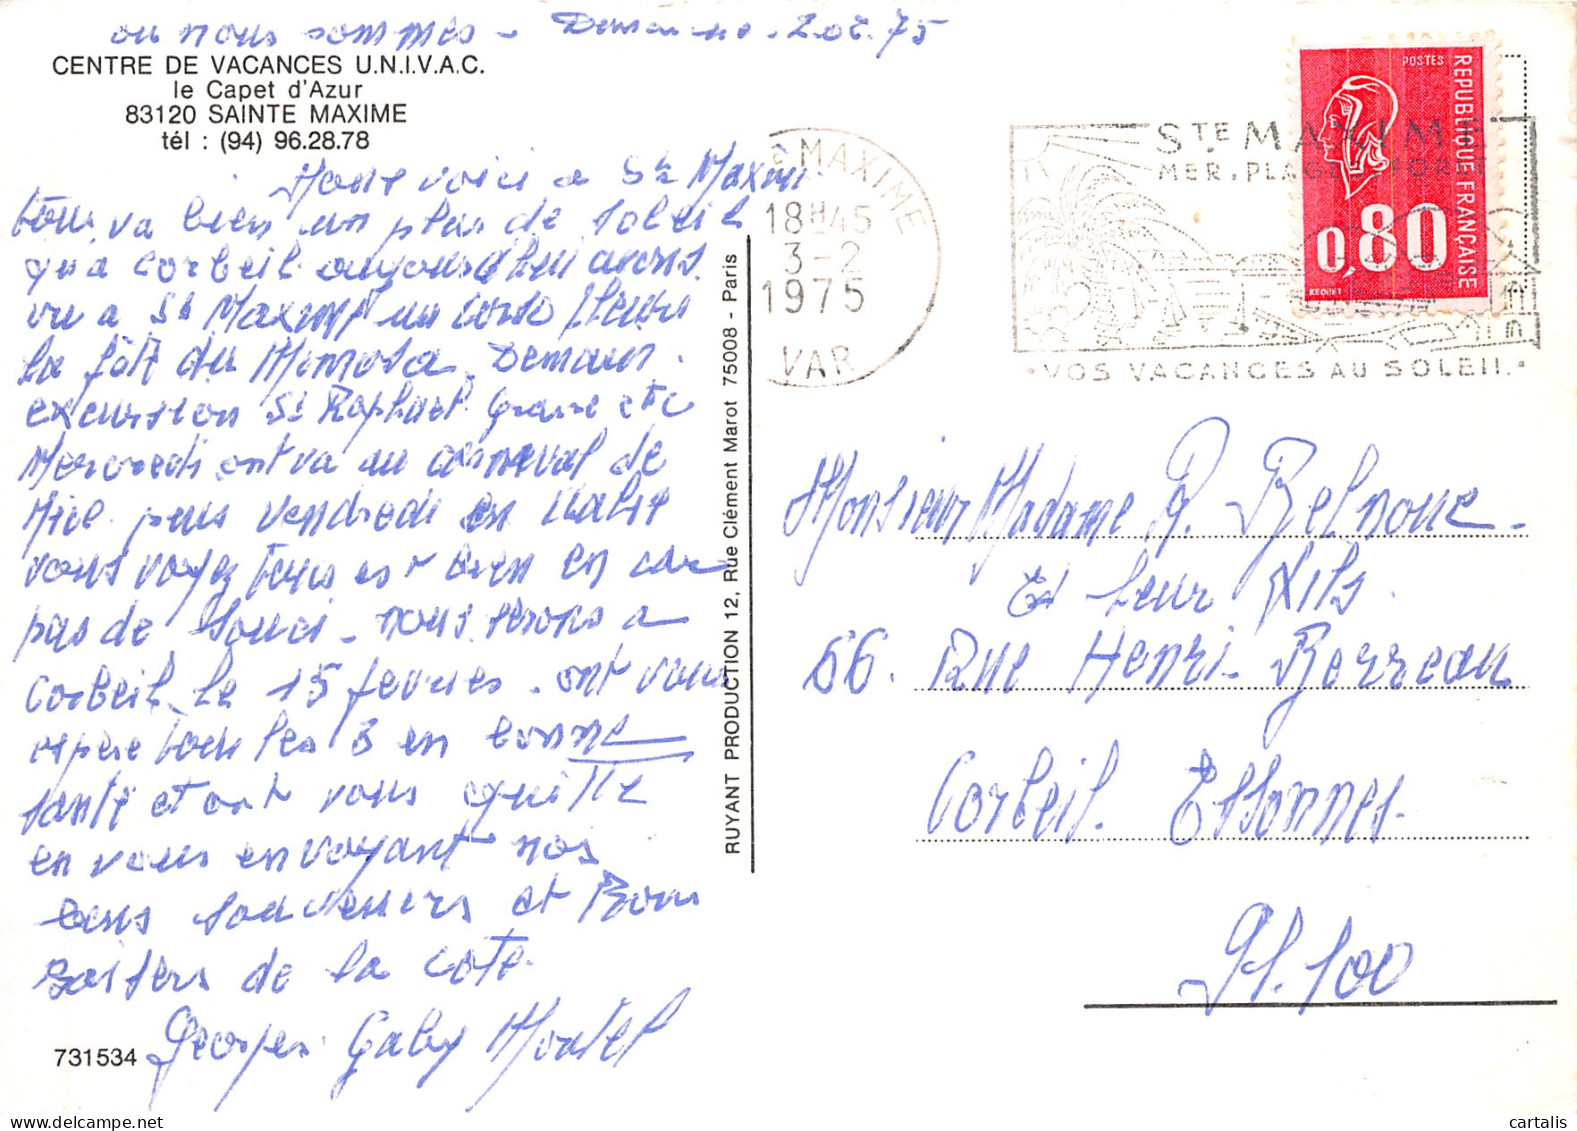 ou nous sommes - Demanche. 2 oc. 75
CENTRE DE VACANCES U.N.I.V.A.C.
le Capet d'Azur
83120 SAINTE MAXIME
tél : (94) 96.28.78
voici a St Maxim
tous va bien un plus de soleil
qu'a Corbeil aujourd'hui avons
vu a St Maxime un corso fleuri
la fêtt du Mimosa. Demain.
excursion St Raphael. Grasse etc
Mercredi ont va au carneval de
Nice puis vendredi en Italie
vous voyez tous est bien en car
pas de souci - nous serons a
Corbeil. le 15 fevries - ont vous
espere tous les 3 en bonne
santé et ont vous quitte
en vous envoyant nos
bons souvenirs et Bons
Baisers de la cote.
Georges Gaby Moutel
731534
RUYANT PRODUCTION 12, Rue Clément Marot 75008 - Paris
STE MAXIME
18H45
3-2
1975
VAR
STE MAXIME
MER. PLAGE. FORET
VOS VACANCES AU SOLEIL
POSTES
REPUBLIQUE FRANÇAISE
0,80
BEQUET
Monsieur Madame R. Belnoue -
Et Leur fils.
66. Rue Henri- Barreau
Corbeil. Essonnes.
91.100
cartalis